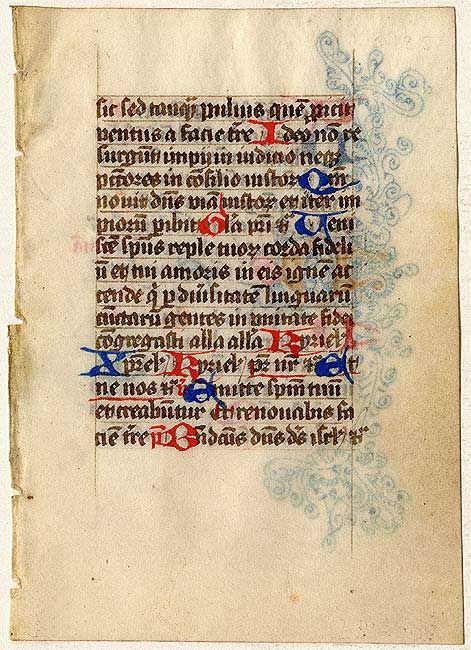 sic sed tanq̄ puluis quē ꝓicit
ventus a facie tr̄e I deo nō re
surgūt impij in iudicio neqꝫ
pctōres in cōsilio iustoꝝ Qm̄
nouit dn̄s viā iustoꝝ et iter im
pioꝝ pibit Gl̄a pr̄i ꝛc̄ Ueni
scē sp̄us reple tuoꝝ corda fideli
ū et tui amoris in eis ignē ac
cende q̇ ꝑ diūsitatē linguarū
cūctarū gentes in vnitate fidei
cōgregasti all̄a all̄a Kyriel̄
Xp̄eel̄ Kyriel̄ pr̄ nr̄ ꝛc̄ Et
ne nos ꝛc̄ Emitte sp̄m tuū
et creabūtur Et renouabis fa
ciē tr̄e p̄ B̄ndcūs dn̄s ds̄ isrl̄ ꝛc̄